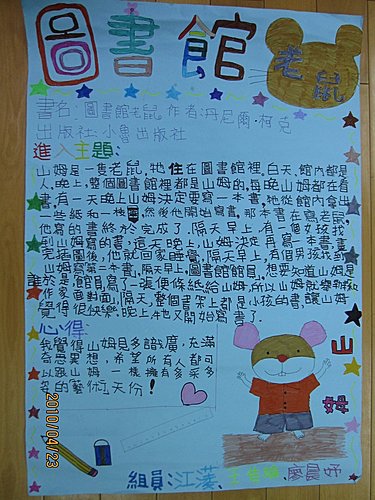 圖書館
老鼠
書名:圖書館老鼠 作者:丹尼爾·柯克
出版社:小魯出版社
進入主題:
山姆是一隻老鼠,牠住在圖書館裡。白天,館內都是
人。晚上,整個圖書館裡都是山姆的,每晚山姆都在看
書,有一天晚上山姆決定要寫一本書,牠從館內拿出
一些紙和一枝筆,然後他開始寫書。那本書在寫老鼠,
他寫的書終於完成了,隔天早上,有一個女孩找
到山姆寫的書,這天晚上,山姆決定再寫一本書,畫
完插圖後,他就回家睡覺,隔天早上,有個男孩找到
山姆寫第二本書,隔天早上,圖書館館員,想要知道山姆是
誰,於是,館員寫了一張便條紙給山姆,所以山姆就舉辦和
作家面對面,隔天,整個書架上都是小孩的書,讓山姆
覺得很快樂,晚上牠又開始寫書了。
心得:
我覺得山姆見多識廣,充滿
奇思異想,希望所有人都可
以跟山姆一樣擁有多采多
姿的藝術天份!
山
姆
2010/04/23
組員:江漢、王 廖晨妤